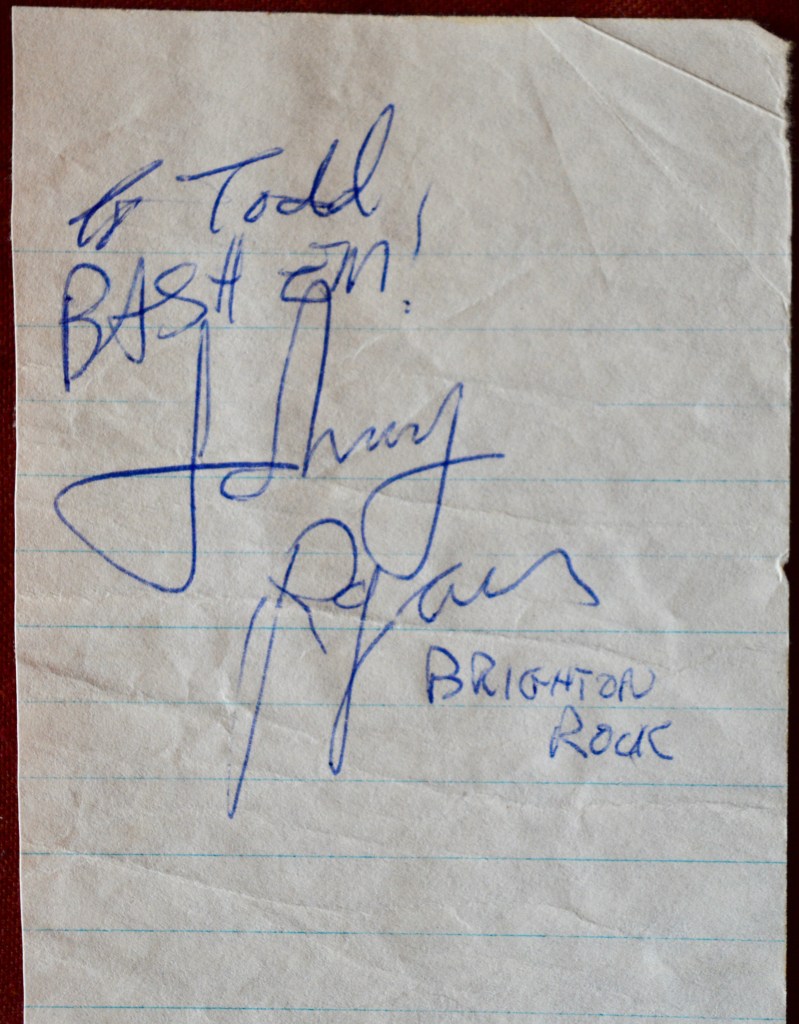 to Todd,
BASH EM!
Johnny
Rogers
BRIGHTON
ROCK